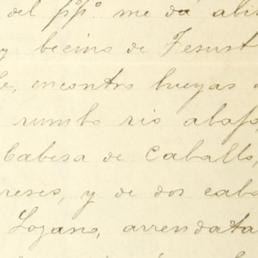 del ppº. me dá abis
y becino de Jesust
e, encontro hueyas
rumbo rio abajo,
Cabesa de Caballo,
reses, y de dos caba
Lozano, arrendata